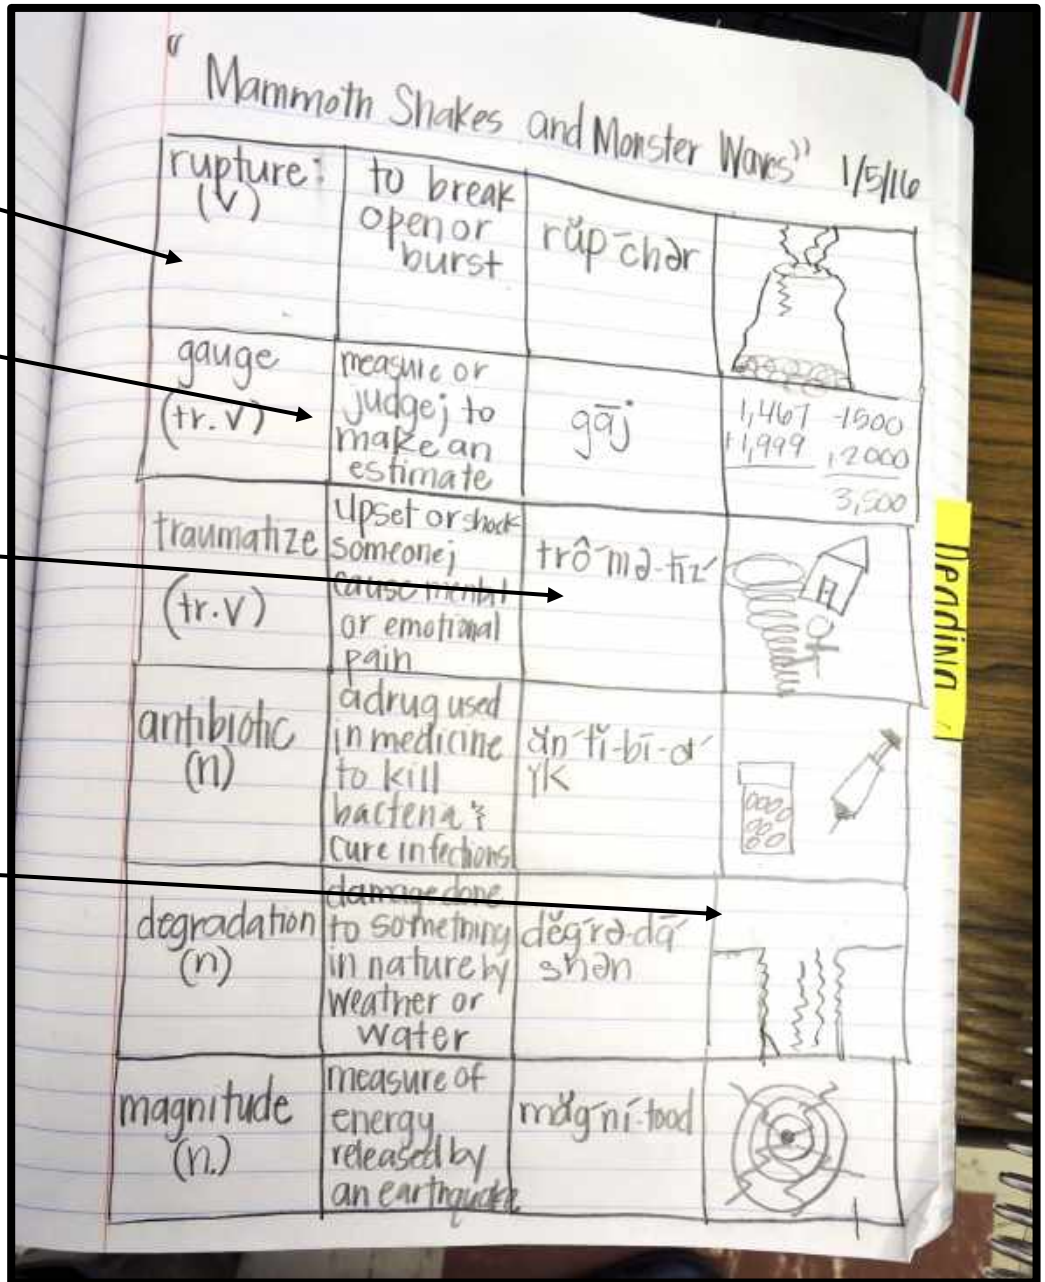 "Mammoth Shakes and Monster Waves" 1/5/16
rupture:
(v)
to break
open or
burst
rŭp-chər
gauge
(tr.v)
measure or
judge; to
make an
estimate
gāj
1,467 -1500
+1,999 ,2000
3,500
traumatize
(tr.v)
upset or shock
someone;
cause mental
or emotional
pain
trô´mə-tīz´
antibiotic
(n)
a drug used
in medicine
to kill
bacteria &
cure infections
degradation
(n)
damage done
to something
in nature by
weather or
water
dĕg´rə-dā´
shən
magnitude
(n.)
measure of
energy
released by
an earthquake
măg´nĭ-tood
Reading